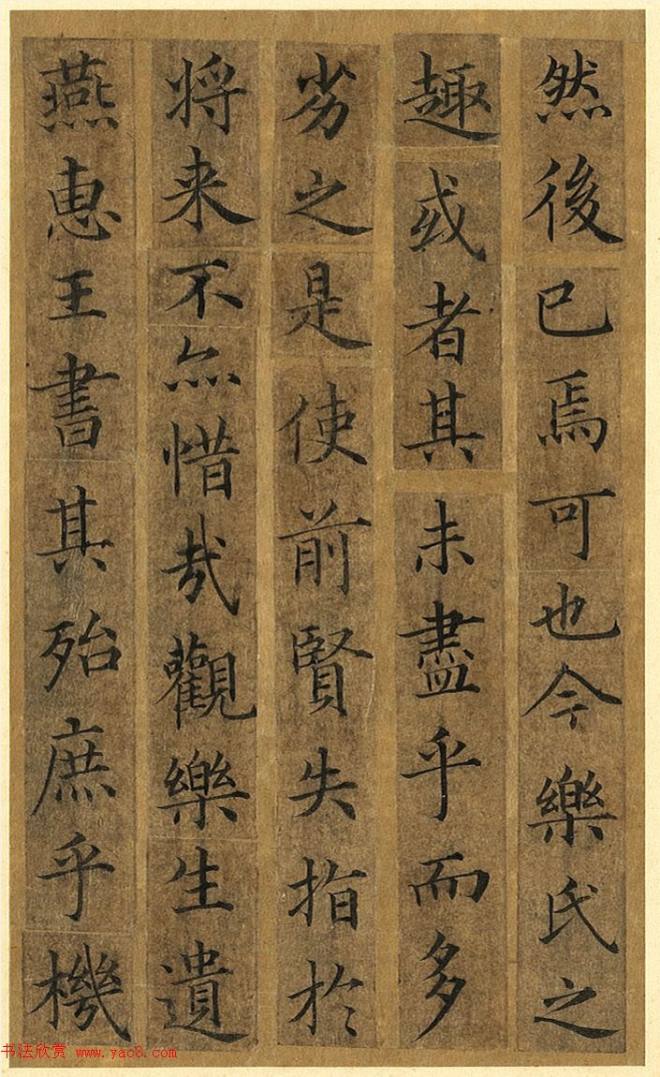 然後已焉可也今樂氏之
趣或者其未盡乎而多
劣之是使前賢失指於
将来不亦惜哉觀樂生遺
燕惠王書其殆庶乎機
书法欣赏 www.yac8.com